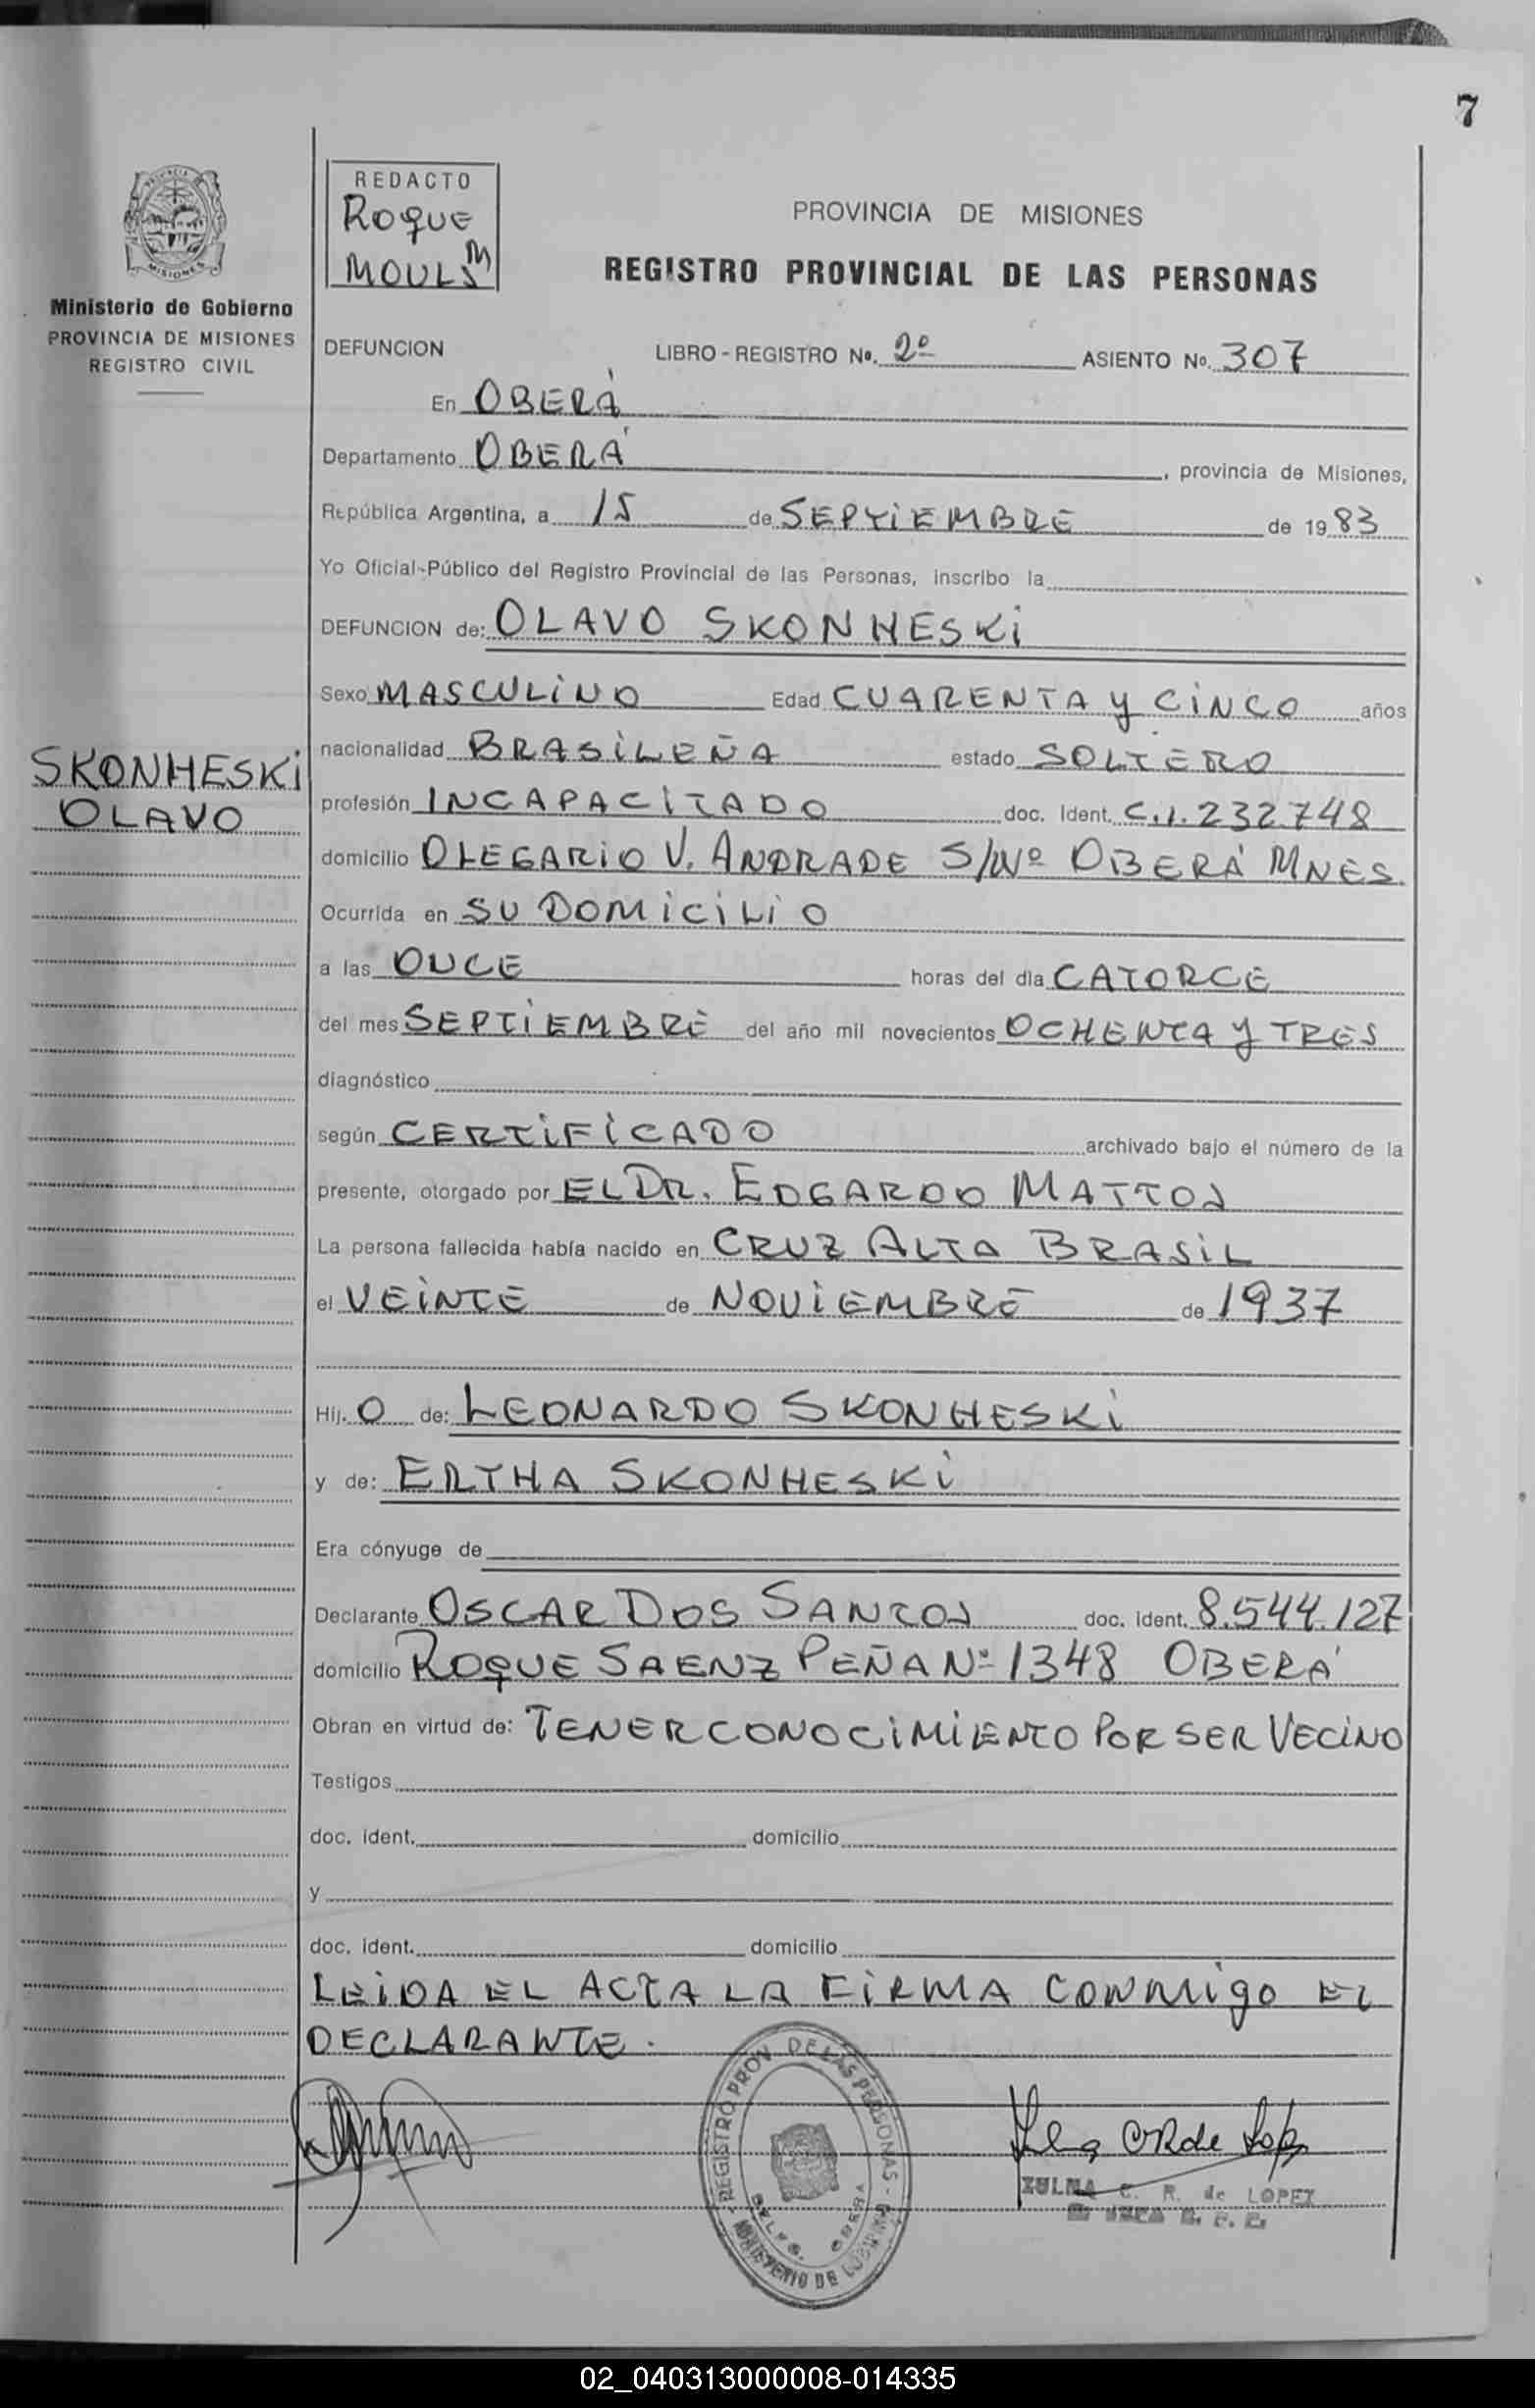 7
PROVINCIA DE MISIONES
Ministerio de Gobierno
PROVINCIA DE MISIONES
REGISTRO CIVIL
REDACTO
Roque
MOULS M
PROVINCIA DE MISIONES
REGISTRO PROVINCIAL DE LAS PERSONAS
DEFUNCION LIBRO - REGISTRO No. 2º ASIENTO No. 307
En OBERÁ
Departamento OBERÁ, provincia de Misiones,
República Argentina, a 15 de SEPTIEMBRE de 1983
Yo Oficial-Público del Registro Provincial de las Personas, inscribo la
DEFUNCION de: OLAVO SKONHESKI
Sexo MASCULINO Edad CUARENTA Y CINCO años
SKONHESKI
OLAVO
nacionalidad BRASILEÑA estado SOLTERO
profesión INCAPACITADO doc. Ident. C.I. 232.748
domicilio OLEGARIO V. ANDRADE S/Nº OBERÁ MNES.
Ocurrida en SU DOMICILIO
a las ONCE horas del día CATORCE
del mes SEPTIEMBRE del año mil novecientos OCHENTA Y TRES
diagnóstico
según CERTIFICADO archivado bajo el número de la
presente, otorgado por EL DR. EDGARDO MATTOS
La persona fallecida había nacido en CRUZ ALTA BRASIL
el VEINTE de NOVIEMBRE de 1937
Hij. O de: LEONARDO SKONHESKI
y de: ERTHA SKONHESKI
Era cónyuge de
Declarante OSCAR DOS SANTOS doc. ident. 8.544.127
domicilio ROQUE SAENZ PEÑA Nº 1348 OBERÁ
Obran en virtud de: TENER CONOCIMIENTO POR SER VECINO
Testigos
doc. ident. domicilio
y
doc. ident. domicilio
LEIDA EL ACTA LA FIRMA CONMIGO EL
DECLARANTE.
REGISTRO PROV. DE LAS PERSONAS - MINISTERIO DE GOBIERNO
ZULMA C. R. de LOPEZ
02_040313000008-014335